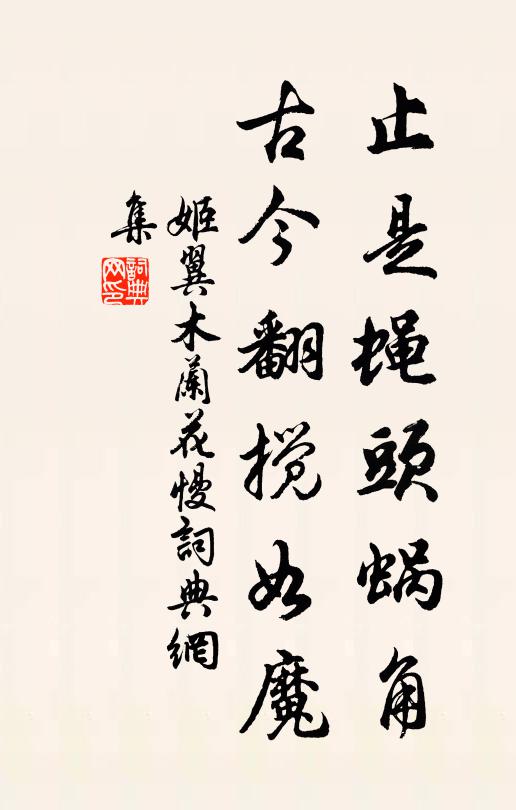 止是蝇頭蜗角
古今翻搅如魔
姬翼木蘭花慢詞典網
集
詞典
网印